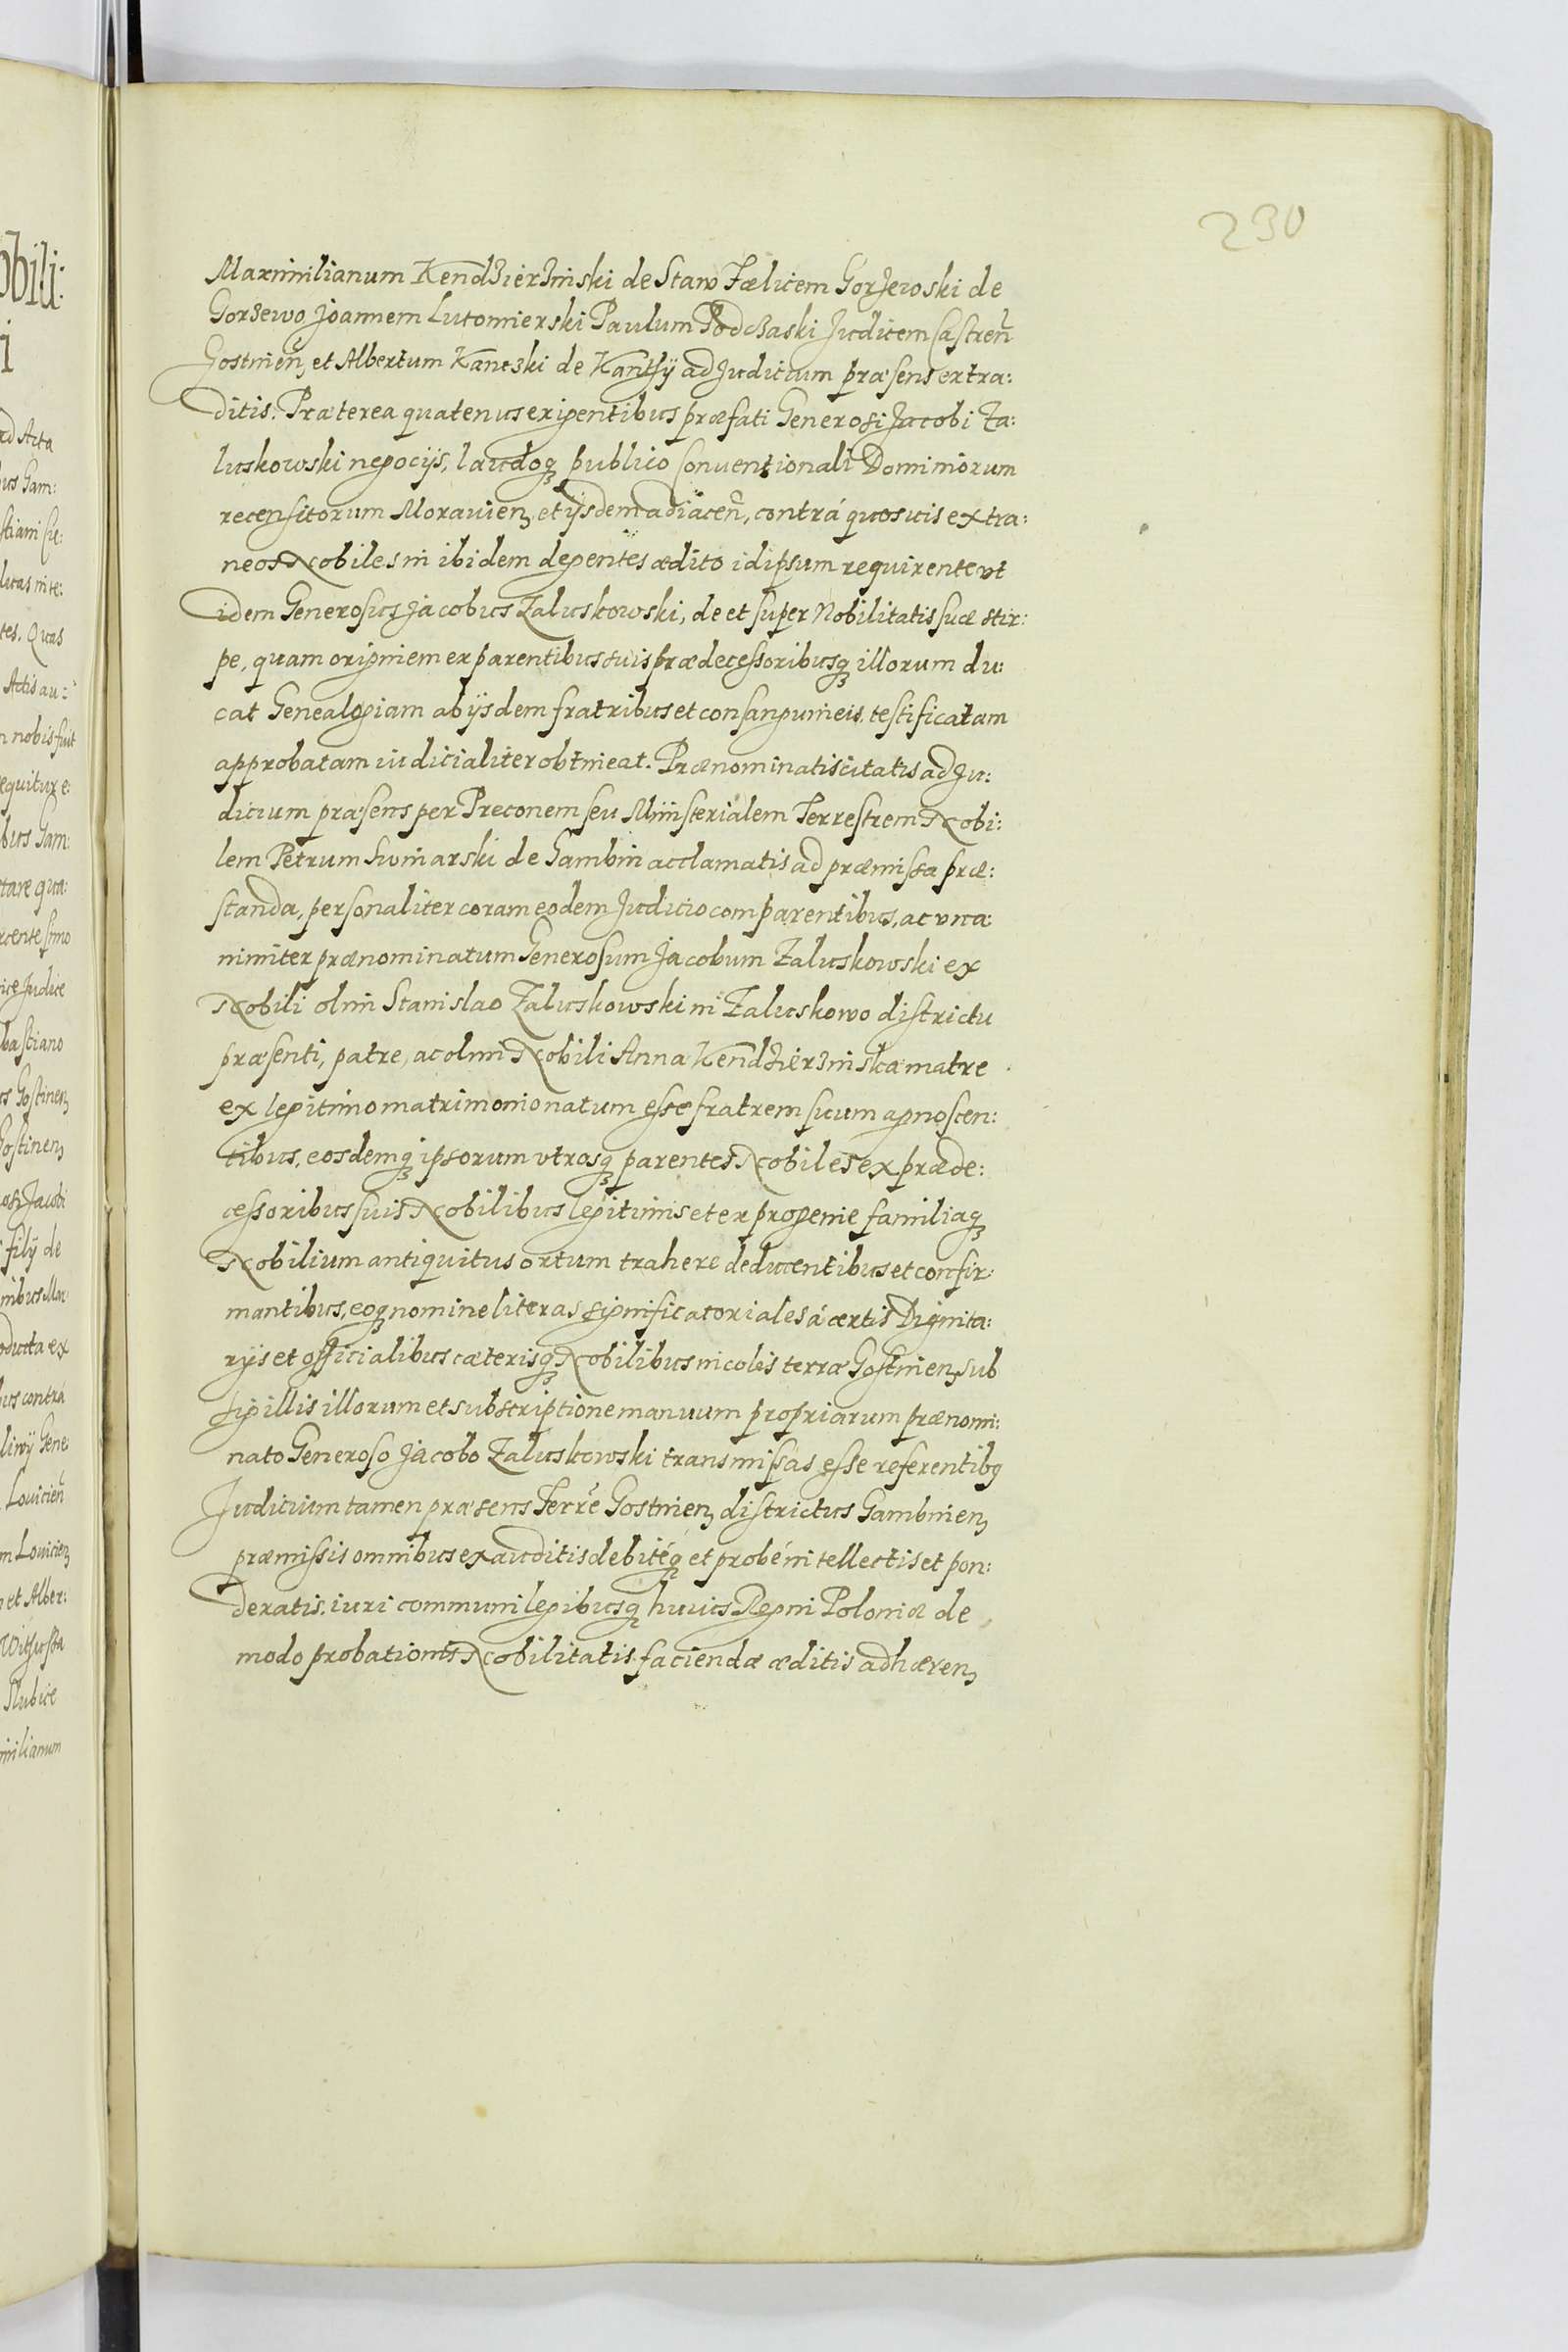 230
Maximilianum Kendzierzinski de Staw Fælicem Gorzewski de
Gorzewo Joannem Lutomierski Paulum Podczaski Judicem Castren̄
Gostinen̄, et Albertum Kanczki de Kantzÿ ad Judicium præsens extra:
ditis. Præterea quatenus exigentibus præfati Generosi Jacobi Za:
luskowski negocijs, laudoq3 publico Conventionali Dominiorum
recensitorum Moravien3 et ijsdem adiacen̄, contrá quosuis extra:
neos Nobiles in ibidem degentes ædito idipsum requirente vt
idem Generosus Jacobus Zaluskowski, de et super Nobilitatis suæ stir:
pe, quam originem ex parentibus suis prædecessoribusq3 illorum du:
cat Genealogiam ab ijsdem fratribus et consanguineis testificatam
approbatam iudicialiter obtineat. Prænominatis citatis ad Ju:
dicium præsens per Preconem seu Ministerialem Terrestrem Nobi:
lem Petrum Swinarski de Gambin acclamatis ad præmissa præ:
standa, personaliter coram eodem Judicio comparentibus, ac vna:
nimiter prænominatum Generosum Jacobum Zaluskowski ex
Nobili olim Stanislao Zaluskowski in Zaluskowo districtu
præsenti, patre, ac olim Nobili Anna Kendzierzinska matre
ex legitimo matrimonio natum esse fratrem suum agnoscen:
tibus, eosdemq3 ipsorum vtrosq3 parentes Nobiles ex præde:
cessoribus suis Nobilibus legitimis et ex progenie familiaq3
Nobilium antiquitus ortum trahere deducentibus et confir:
mantibus, eoq3 nomine literas significatoriales á certis Dignita:
rijs et officialibus cæterisq3 Nobilibus incolis terræ Gostinen3 sub
sigillis illorum et subscriptione manuum propriarum prænomi:
nato Generoso Jacobo Zaluskowski transmissas esse referentib9
Judicium tamen præsens Terr̄e Gostinen3 districtus Gambinen3
præmissis omnibus exauditis debitéq3 et probé intellectis et pon:
deratis. iuri communi legibusq3 huius Regni Poloniæ de
modo probationis Nobilitatis faciendæ æditis adhæren3